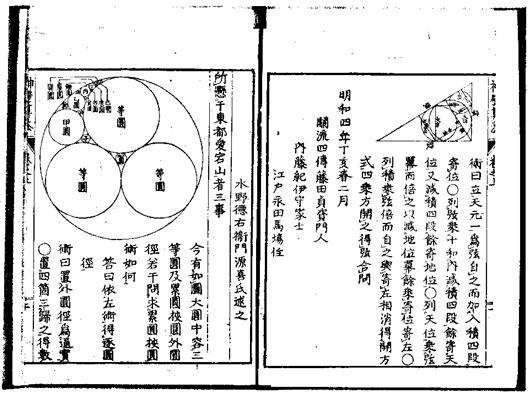 術曰立天元一爲弦自之而加入積四段
寄位○列弦乘十和內減積四段餘寄天
位又減積四段餘寄地位○列天位乘弦
冪而倍之以減地位冪餘乘寄位寄左○
列積乘弦倍而自之與寄左相消得開方
式四乘方開之得弦合問
明和四年丁亥春二月
關流四傳藤田貞資門人
內藤紀伊守家士
江戸永田馬場住
水野德右衛門源喜氏述之
所懸于東都愛宕山者三事
等圓
甲圓
等圓
等圓
今有如圖大圓中容三
等圓及累圓挾圓外圓
徑若干問求累圓挾圓
術如何
答曰依左術得逐圓
徑
術曰置外圓徑爲實
○置四箇三歸之得數